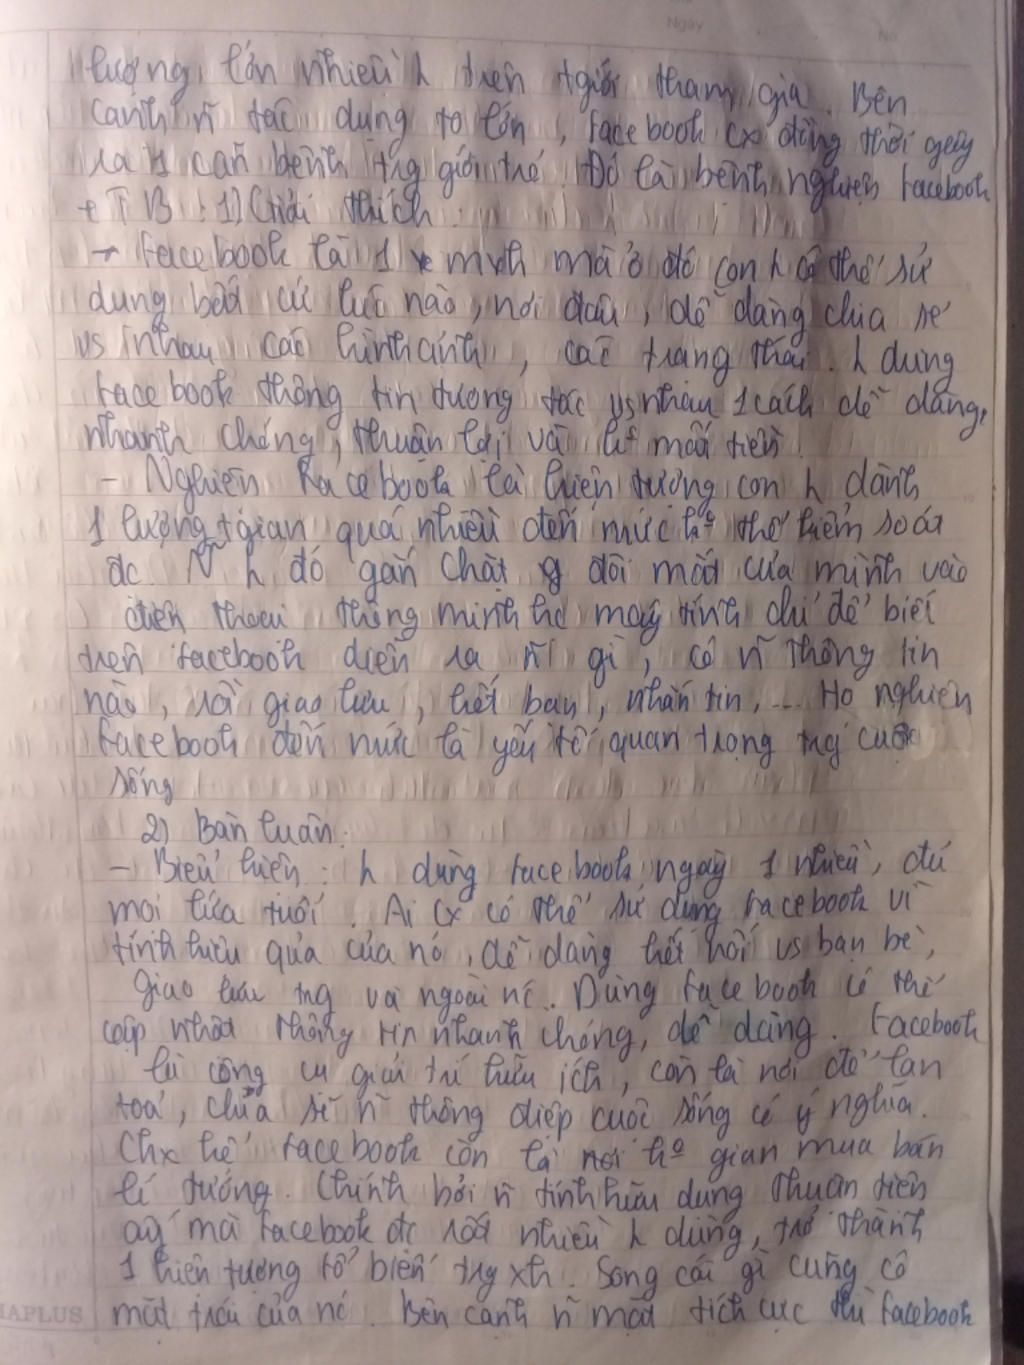 Ngày
No
lượng lớn nhiều h trên tgiới tham gia. Bên
cạnh n~ tác dụng to lớn, facebook cx đồng thời gây
ra 1 căn bệnh trg giới trẻ. Đó là bệnh nghiện facebook
+ TB: 1) Giải thích:
- Facebook là 1 mxh mà ở đó con h có thể sử
dụng bất cứ lúc nào, nơi đâu, dễ dàng chia sẻ
vs nhau các hình ảnh, các trạng thái. h dùng
facebook thông tin tương tác vs nhau 1 cách dễ dàng,
nhanh chóng, thuận lợi và ko mất tiền.
- Nghiện Facebook là hiện tượng con h dành
1 lượng tgian quá nhiều đến mức ko thể kiểm soát
đc. N~ h đó gắn chặt đôi mắt của mình vào
điện thoại thông minh hc máy tính chỉ để biết
trên facebook diễn ra n~ gì, có n~ thông tin
nào, rồi giao lưu, kết bạn, nhắn tin,... Họ nghiện
facebook đến mức là yếu tố quan trọng trg cuộc
sống
2) Bàn luận:
- Biểu hiện: h dùng facebook ngày 1 nhiều, đủ
mọi lứa tuổi. Ai cx có thể sử dụng facebook vì
tính hiệu quả của nó, dễ dàng kết nối vs bạn bè,
giao lưu trg và ngoài nc. Dùng facebook có thể
cập nhật thông tin nhanh chóng, dễ dàng. Facebook
là công cụ giải trí hữu ích, còn là nơi để lan
toả, chia sẻ n~ thông điệp cuộc sống có ý nghĩa.
Chx hế facebook còn là nơi ko gian mua bán
lí tưởng. Chính bởi n~ tính hữu dụng thuận tiện
ấy mà facebook đc rất nhiều h dùng, trở thành
1 hiện tượng phổ biến trg xh. Song cái gì cũng có
mặt trái của nó. Bên cạnh n~ mặt tích cực thì facebook
HAPLUS